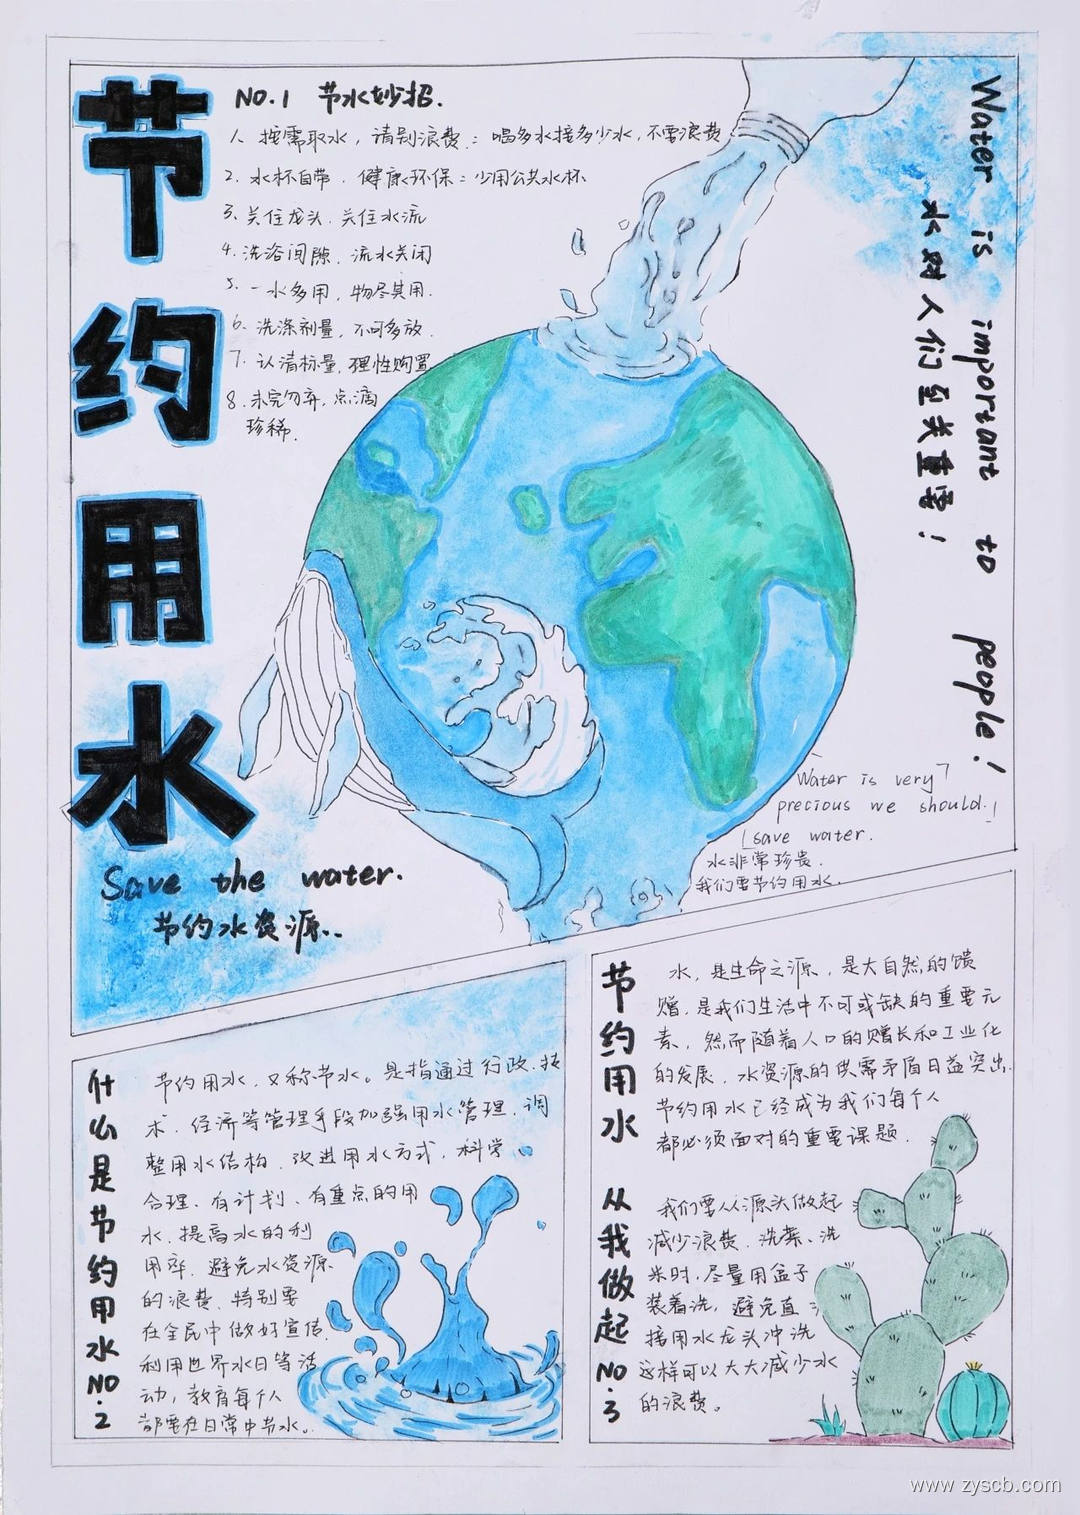 节约用水
NO.1 节水妙招.
1. 按需取水，请别浪费：喝多水接多少水，不要浪费
2. 水杯自带．健康环保：少用公共水杯
3. 关住龙头．关住水流
4. 洗浴间隙．流水关闭
5. 一水多用，物尽其用．
6. 洗涤剂量，不可多放．
7. 认清标量，理性购置
8. 未完勿弃，点滴
珍稀．
Water is important to people!
水对人们至关重要！
Save the water.
节约水资源..
Water is very
precious we should.
save water.
水非常珍贵．
我们要节约用水．
什么是节约用水NO.2
节约用水，又称节水。是指通过行政．技
术．经济等管理手段加强用水管理，调
整用水结构．改进用水方式，科学
合理、有计划、有重点的用
水．提高水的利
用率．避免水资源
的浪费．特别要
在全民中做好宣传．
利用世界水日等活
动，教育每个人
都要在日常中节水。
节约用水 从我做起 NO.3
水，是生命之源，是大自然的馈
赠．是我们生活中不可或缺的重要元
素，然而随着人口的赠长和工业化
的发展．水资源的供需矛盾日益突出．
节约用水已经成为我们每个人
都必须面对的重要课题．
我们要从源头做起
减少浪费．洗菜、洗
米时，尽量用盆子
装着洗，避免直
接用水龙头冲洗
这样可以大大减少水
的浪费。
www.zyscb.com